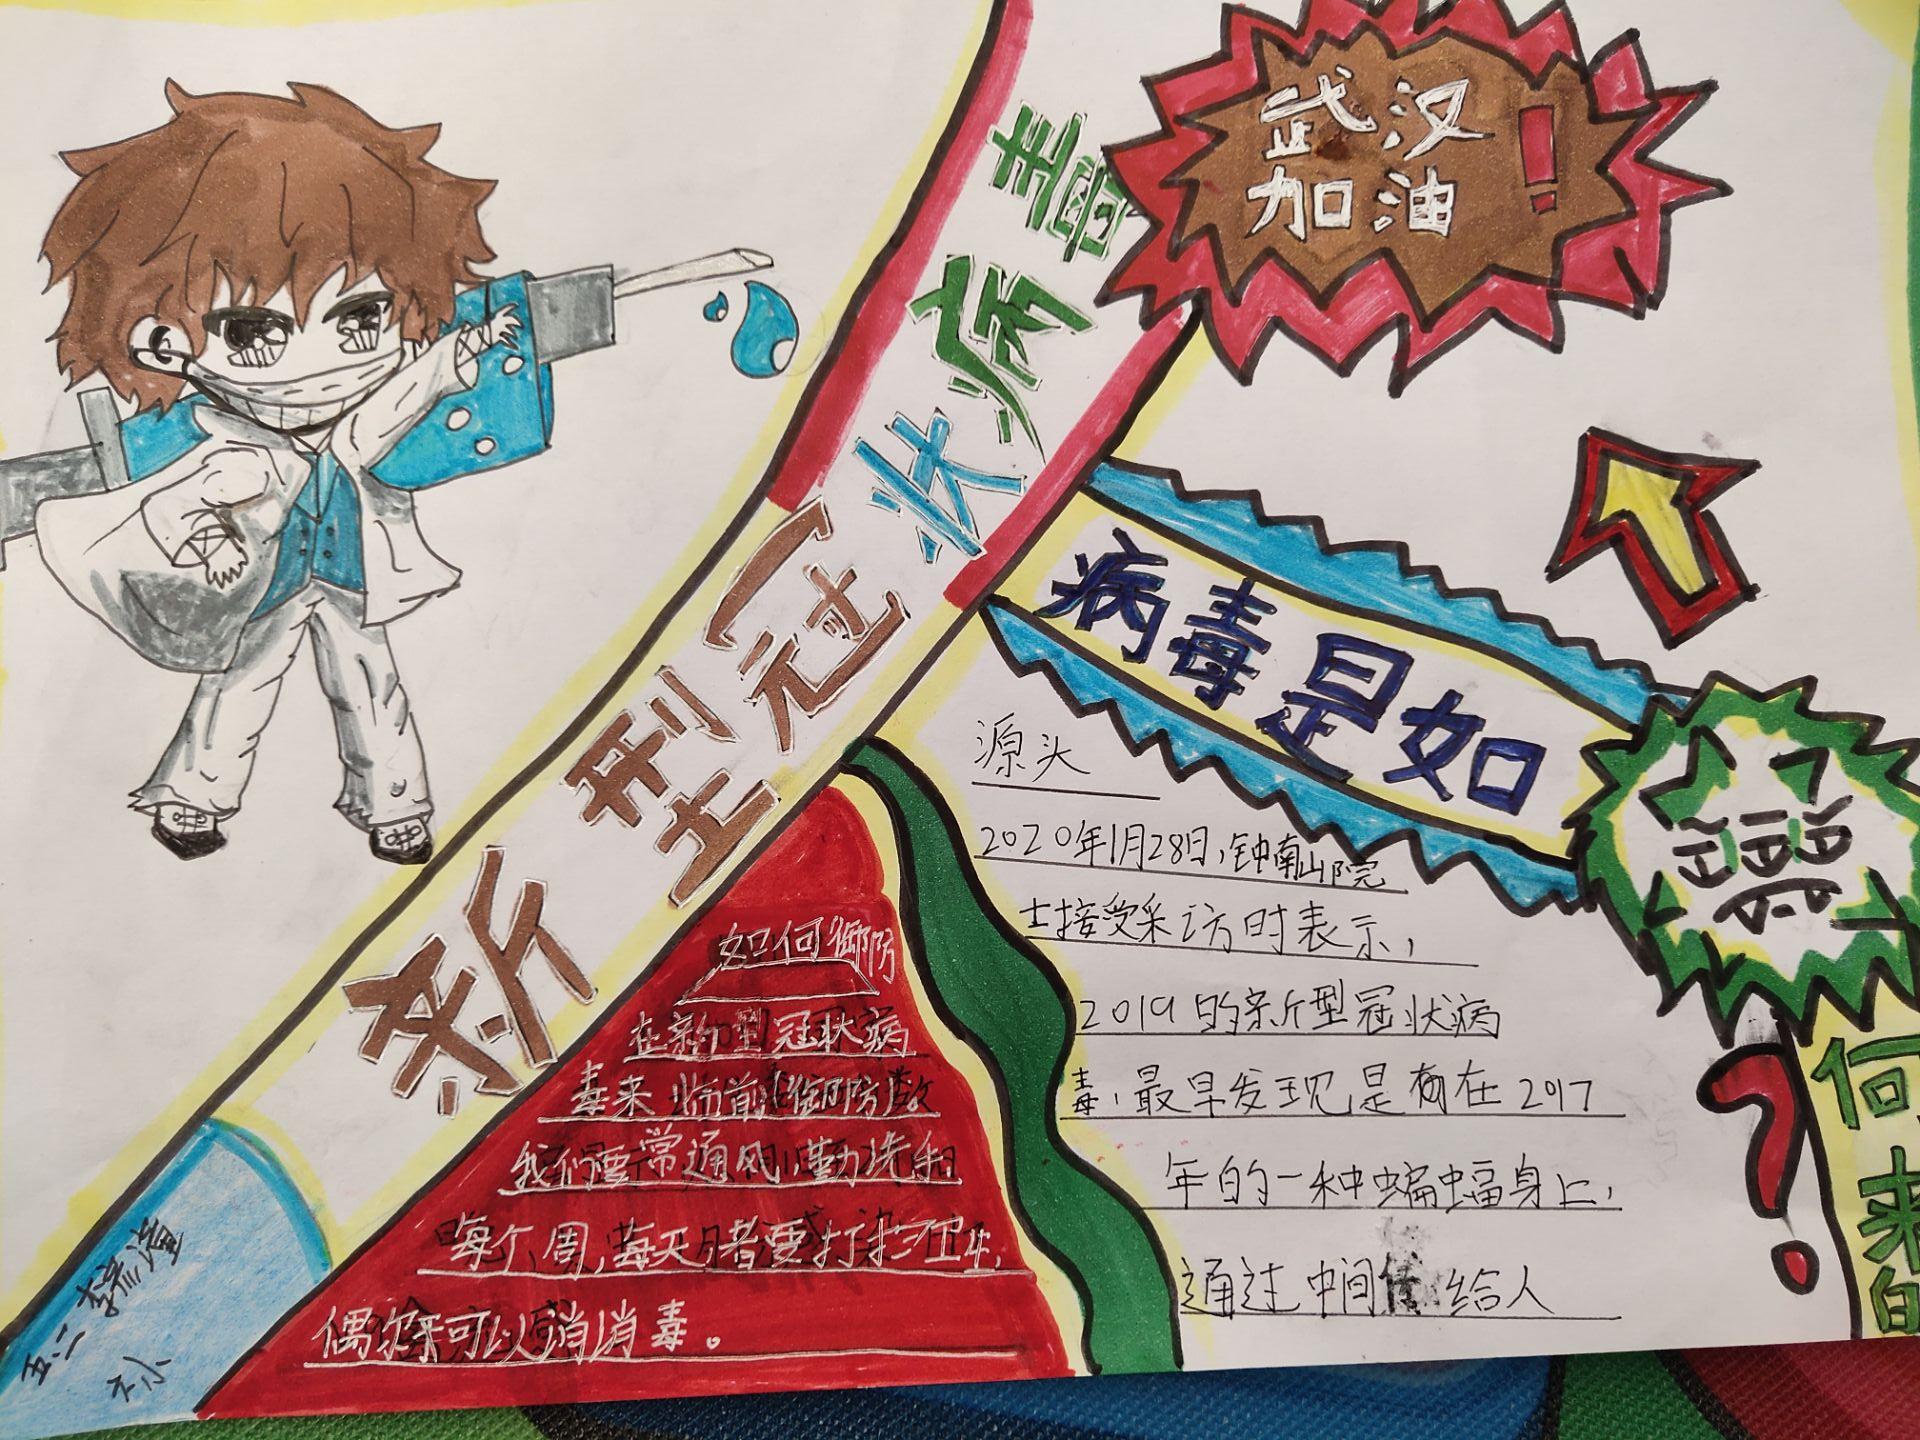 新型冠状病毒
武汉
加油！
病毒是如
何来的
？
源头
2020年1月28日，钟南山院
士接受采访时表示，
2019的新型冠状病
毒，最早发现是在2017
年的一种蝙蝠身上，
通过中间 给人
如何御防
在新型冠状病
毒来临前御防
我们要常通风，勤洗
每个周，每天 者要打扫卫生，
偶尔 可以消消毒。
五.二